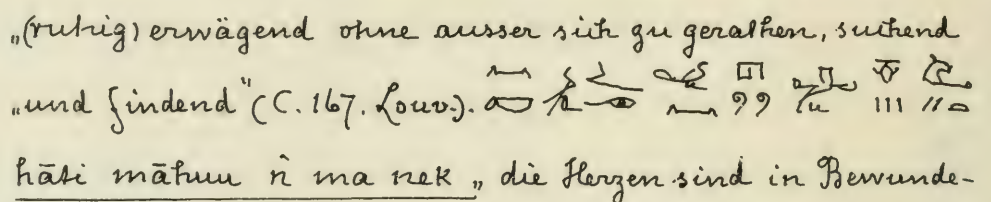 „(ruhig) erwägend ohne ausser sich zu gerathen, suchend
„und findend“ (C. 167. Louv.).
hāti māhuu n̂ ma nek „die Herzen sind in Bewunde-